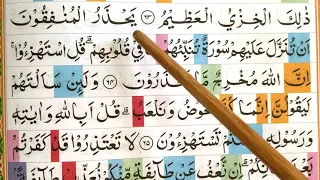 ذٰلِكَ الْخِزْيُ الْعَظِيْمُ ۝٦٣ يَحْذَرُ الْمُنٰفِقُوْنَ
اَنْ تُنَزَّلَ عَلَيْهِمْ سُوْرَةٌ تُنَبِّئُهُمْ فِيْ قُلُوْبِهِمْ ؕ قُلِ اسْتَهْزِءُوْا ۚ
اِنَّ اللّٰهَ مُخْرِجٌ مَّا تَحْذَرُوْنَ ۝٦٤ وَلَئِنْ سَاَلْتَهُمْ
لَيَقُوْلُنَّ اِنَّمَا كُنَّا نَخُوْضُ وَنَلْعَبُ ؕ قُلْ اَبِاللّٰهِ وَاٰيٰتِهٖ
وَرَسُوْلِهٖ كُنْتُمْ تَسْتَهْزِءُوْنَ ۝٦٥ لَا تَعْتَذِرُوْا قَدْ كَفَرْتُمْ
بَعْدَ اِيْمَانِكُمْ ؕ اِنْ نَّعْفُ عَنْ طَآئِفَةٍ مِّنْكُمْ نُعَذِّبْ طَآئِفَةً